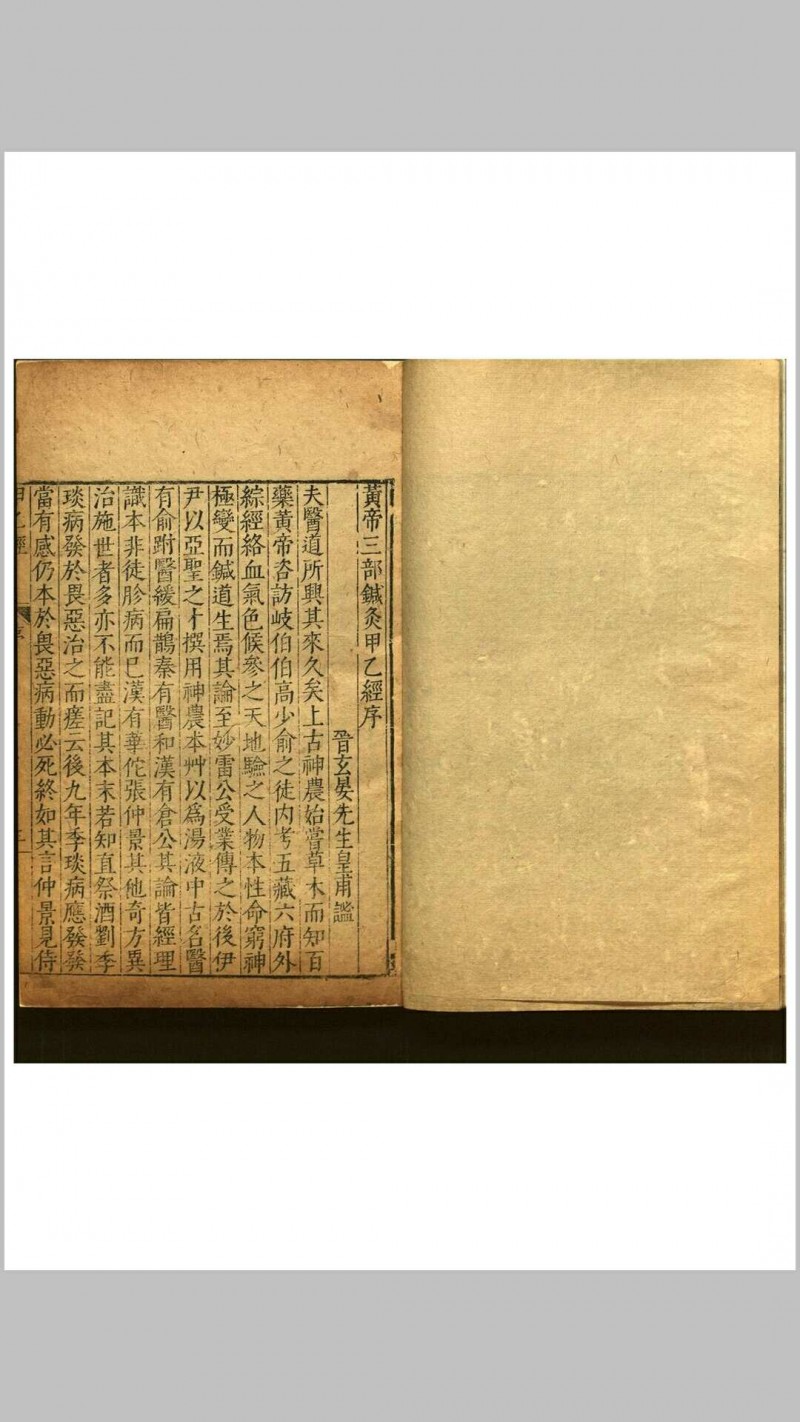 黃帝三部鍼灸甲乙經序
晉玄晏先生皇甫謐
夫醫道所興其來久矣上古神農始嘗草木而知百
藥黃帝咨訪岐伯伯高少俞之徒內考五藏六府外
綜經絡血氣色候參之天地驗之人物本性命窮神
極變而鍼道生焉其論至妙雷公受業傳之於後伊
尹以亞聖之才撰用神農本艸以爲湯液中古名醫
有俞跗醫緩扁鵲秦有醫和漢有倉公其論皆經理
識本非徒胗病而已漢有華佗張仲景其他奇方異
治施世者多亦不能盡記其本末若知直祭酒劉季
琰病發於畏惡治之而瘥云後九年季琰病應發發
當有感仍本於畏惡病動必死終如其言仲景見侍
甲乙經 序